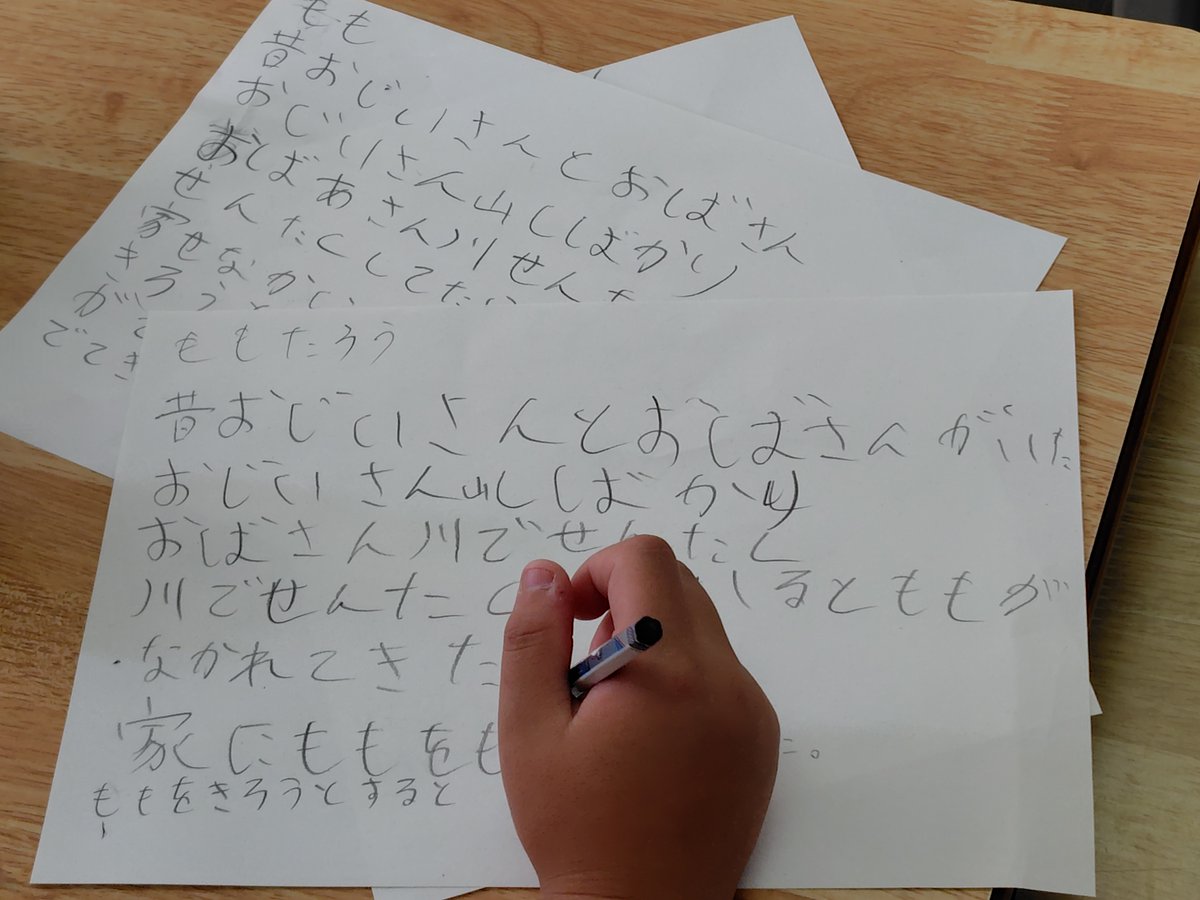 もも
昔おじいさんとおばさん
おじいさん山しばかり
おばあさん川せんた
ぜんたくしてたい
家せなかい
きろうと
がて
でてき
ももたろう
昔おじいさんとおばさんがいた
おじいさん山しばかり
おばさん川でせんたく
川でせんたくいるとももが
なかれてきた
家にももをもた。
ももをきろうとすると